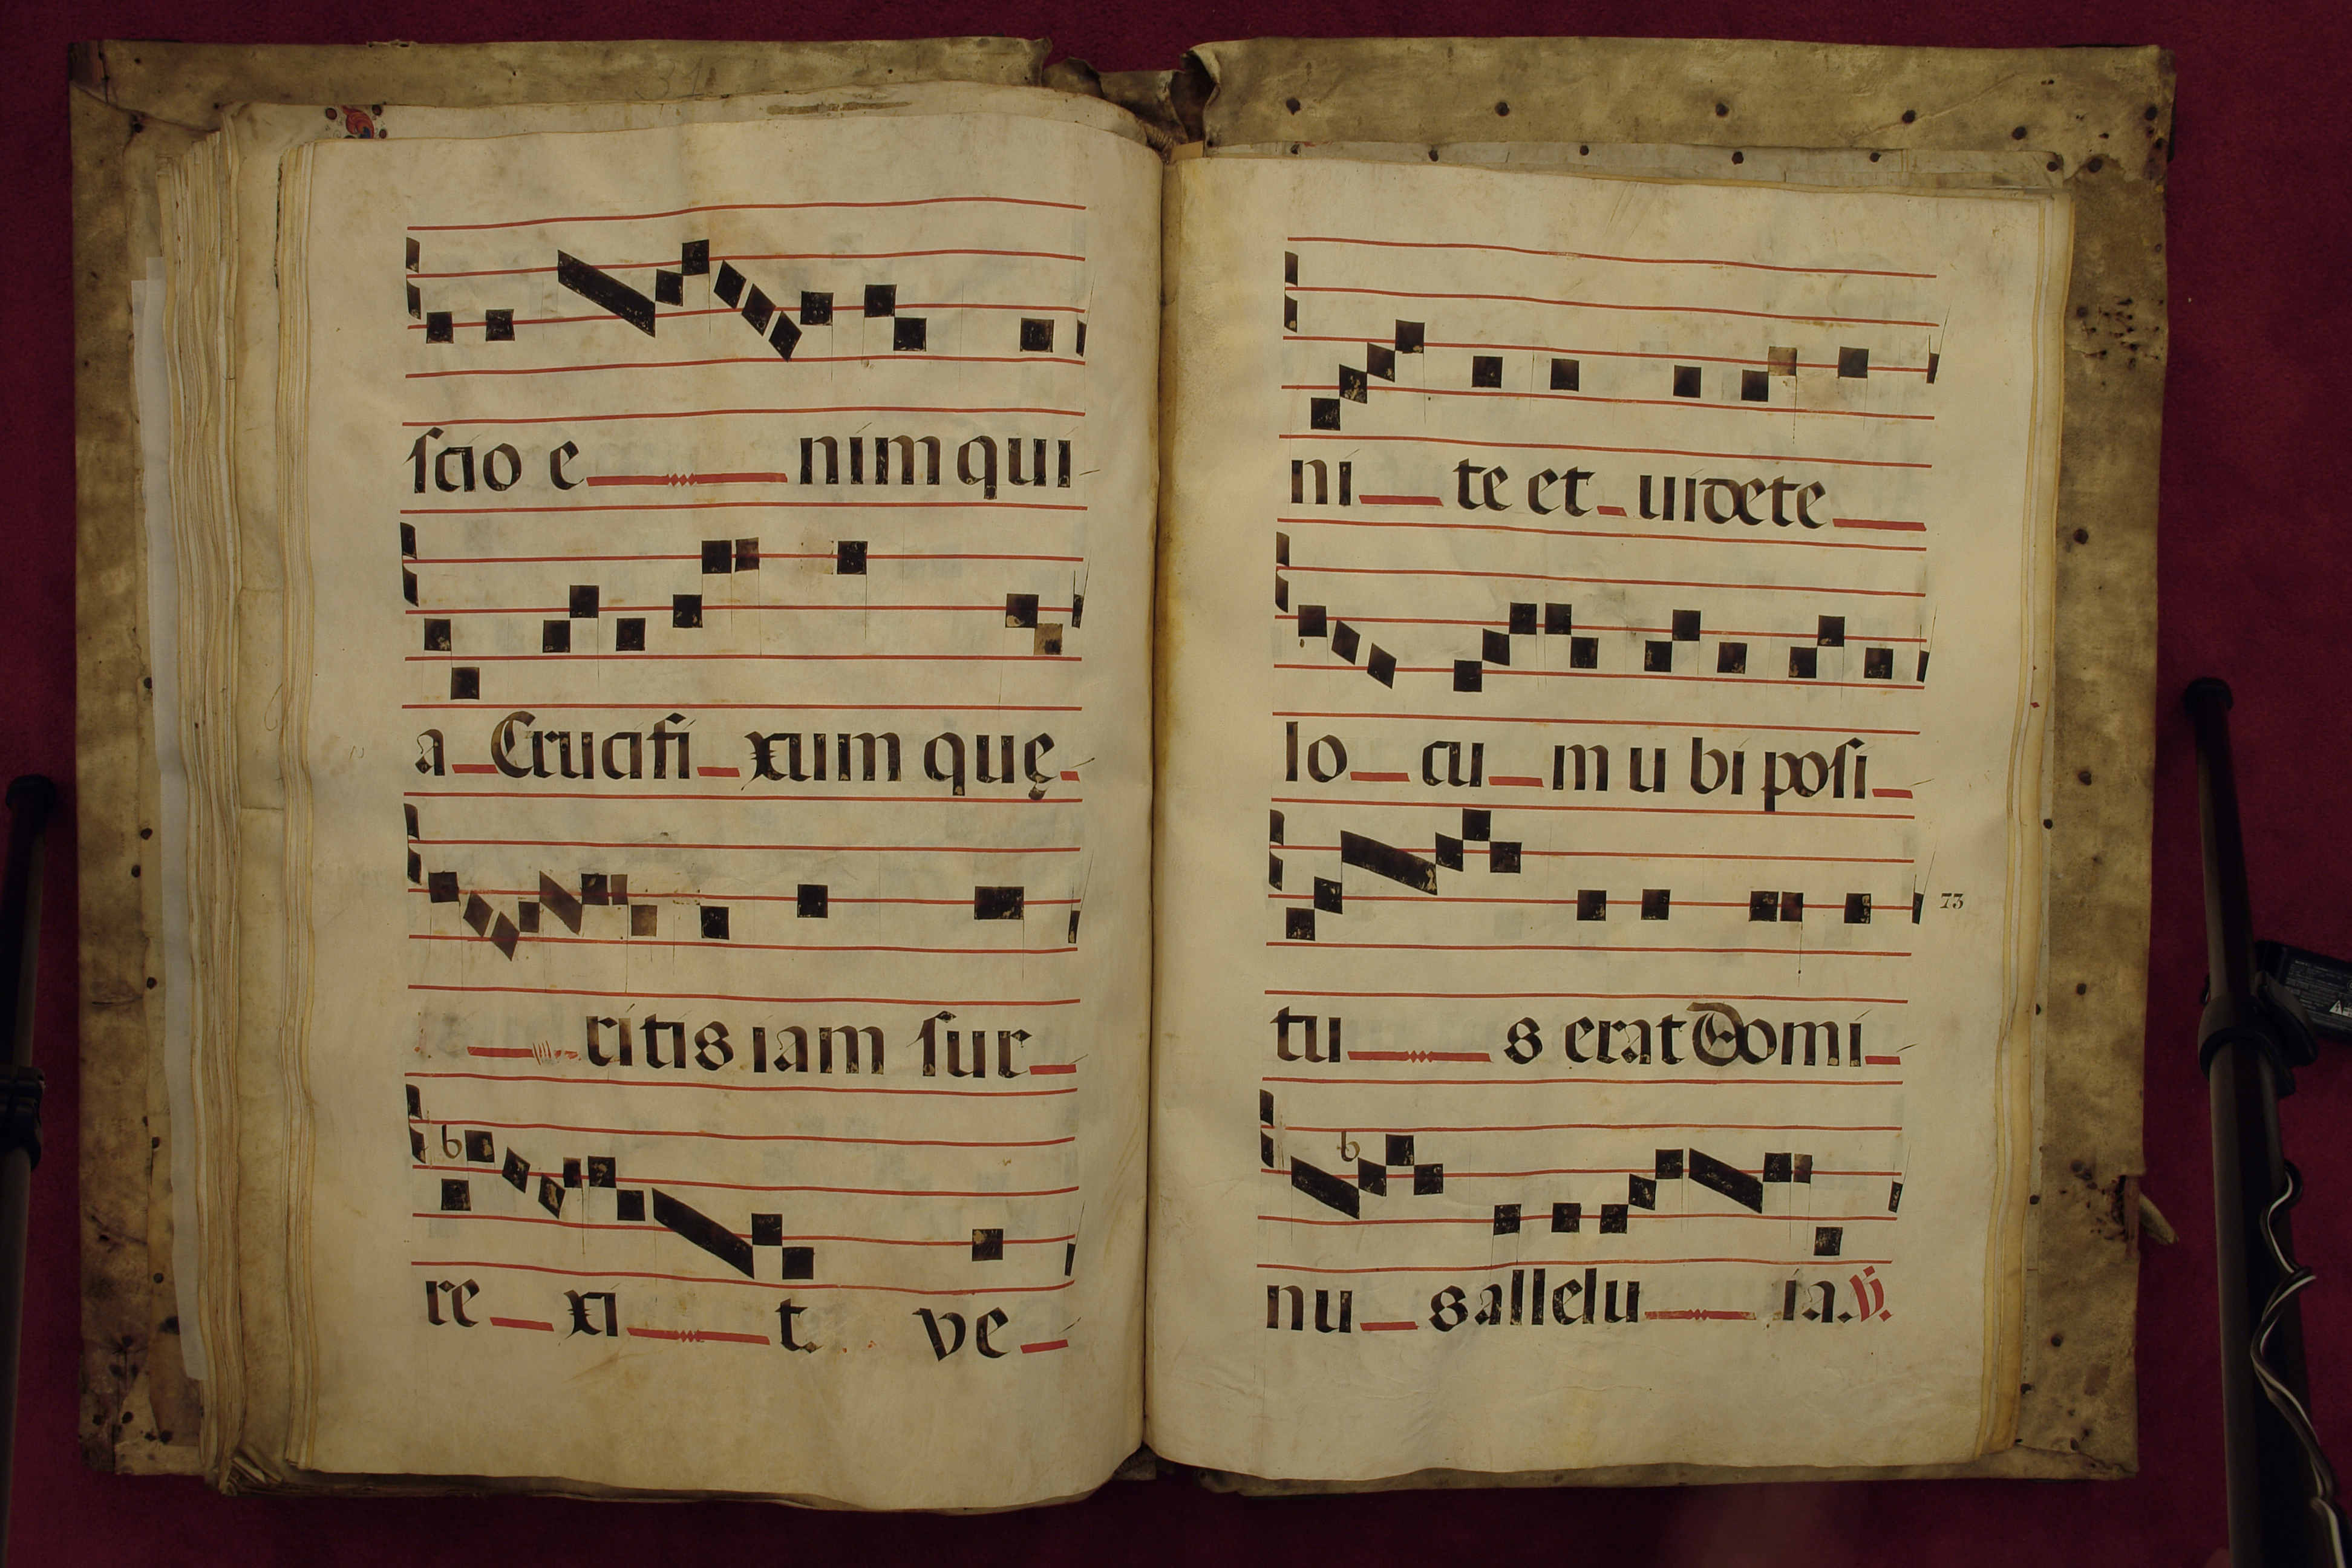 scio e nim qui
a Crucifi xum quę
ritis iam sur
re xi t. ve
ni te et uidete
lo cu m u bi posi
73
tu s erat Domi
nu s allelu ia. V.